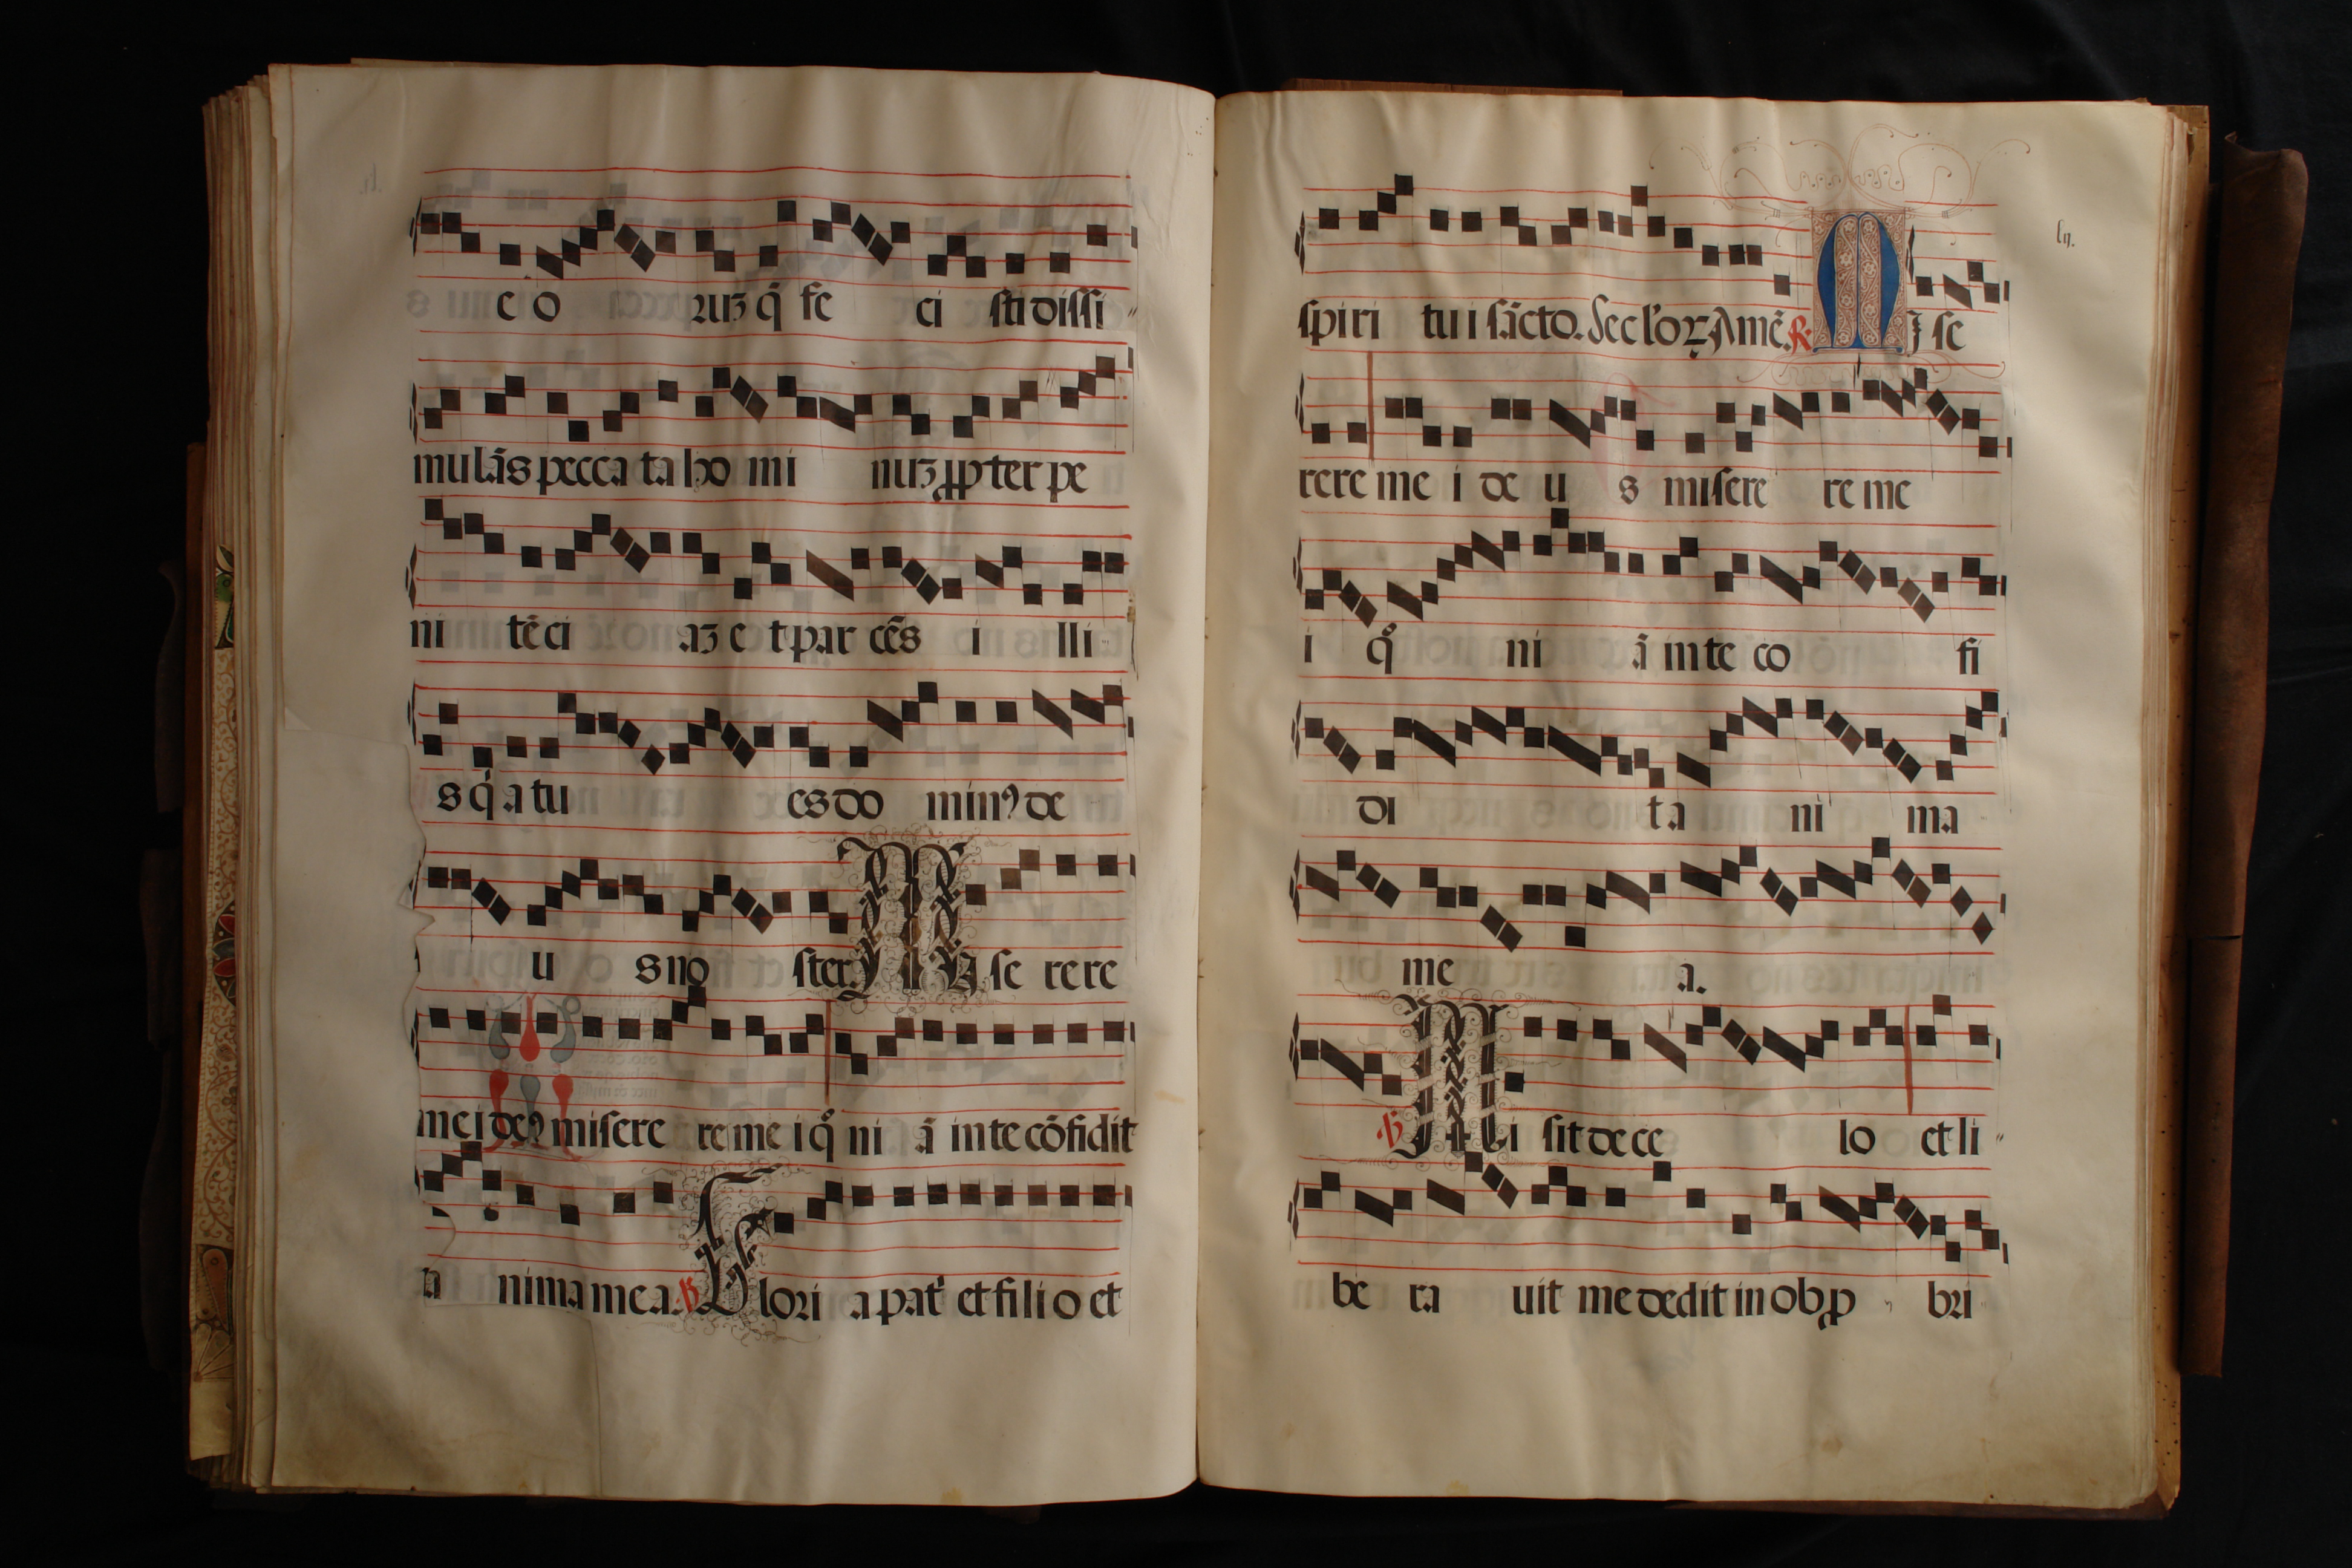 e o ruȝ q̄ fe ci sti dissi
mulās pecca ta ho mi nuȝ ꝓpter pe
ni tēci aȝ e t par cēs i lli
s q̄ a tu es do minꝰ de
u s no ster. Mi se re re
mei deꝰ misere re me i qͦ ni ā in te cōfidit
a nima mea. ℣ Glori a patͥ et fili o et
lij.
spiri tu i sācto. Secl'oꝝ Amē. ℟ Mi se
rere me i de u s misere re me
i qͦ ni ā in te co fi
di t a ni ma
me a.
℣ Mi sit de ce lo et li
be ra uit me dedit in obꝓ bri